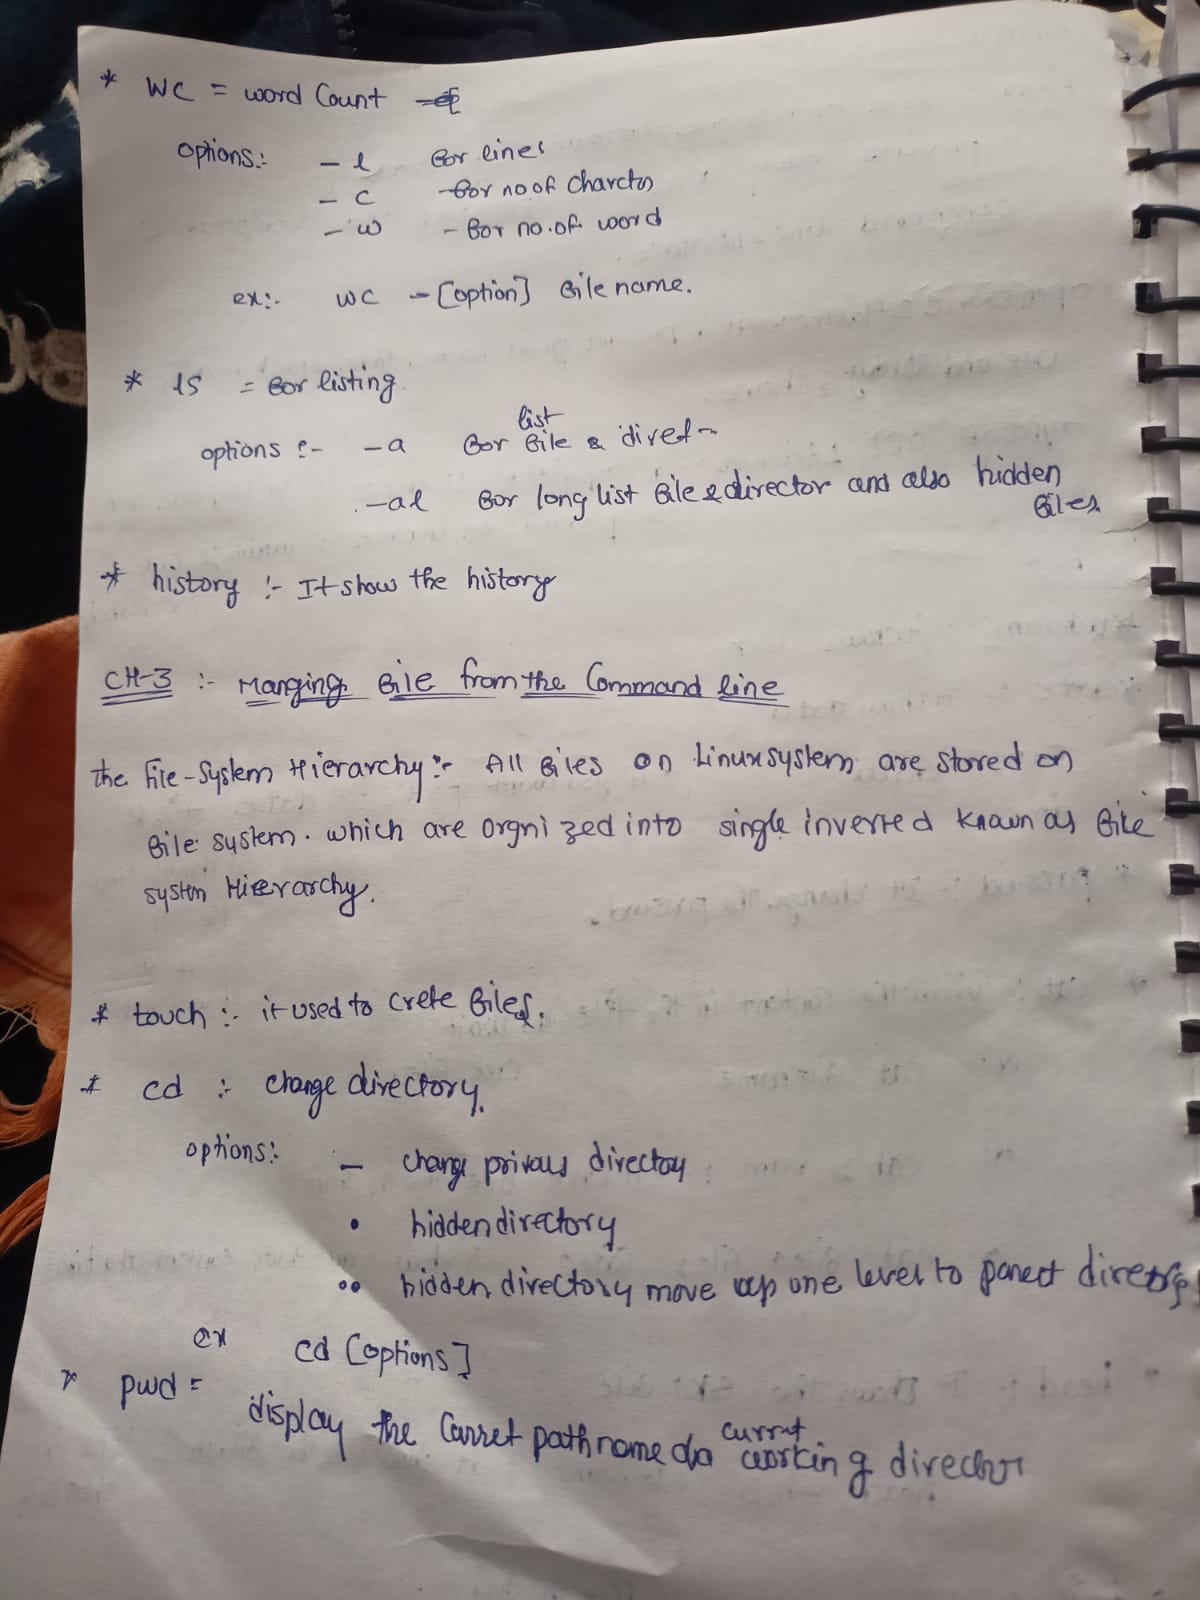 * WC = word Count
options:- - l for lines
- c - for no of Charctrs
- w - for no. of word
ex:- wc - [option] file name.
* ls = for listing
list
options :- - a for file & diret
- al for long list file & director and also hidden
files.
* history :- It show the history
CH-3 :- Manging file from the Command line
the File-System Hierarchy :- All files on Linux system are stored on
file system. which are orgnized into single inverted known as file
system Hierarchy.
* touch :- it used to crete files.
* cd :- change directory.
options:- - change privous directoy
. hidden directory
.. hidden directory move up one level to parect
ex cd [options]
* pwd =
current
display the Curret path name working director